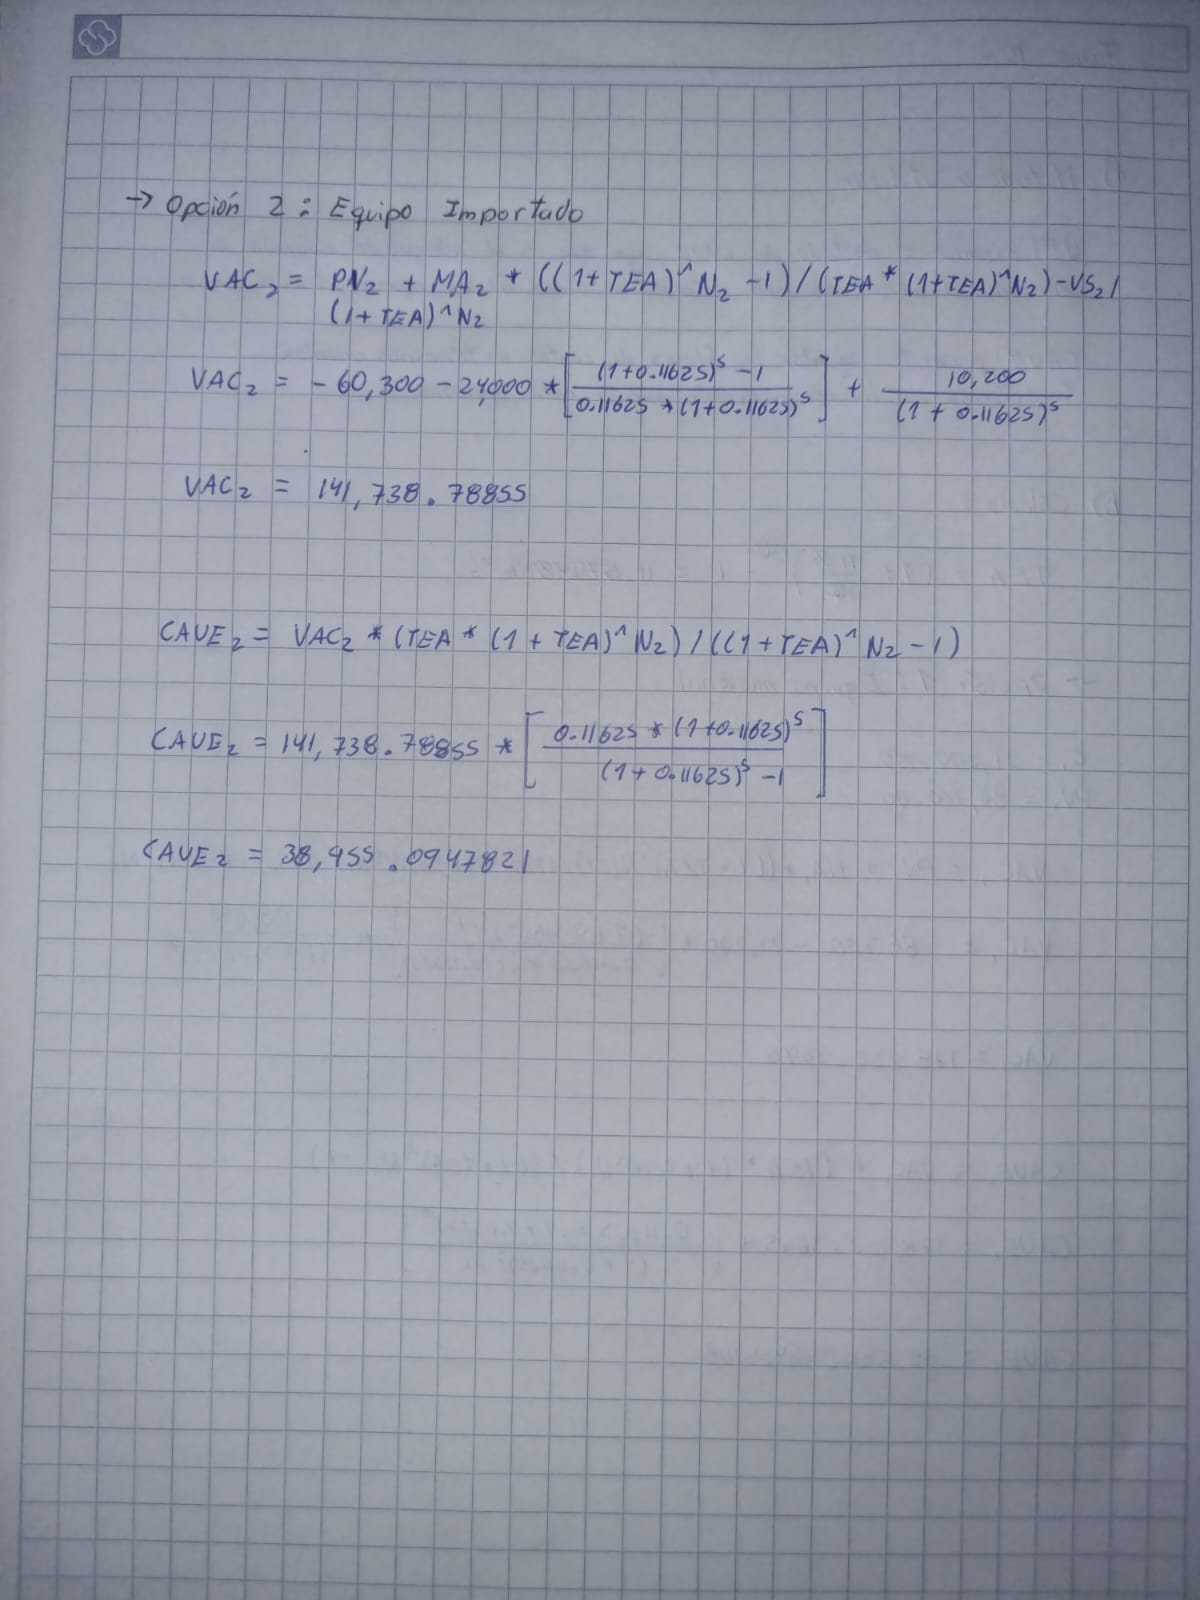 → Opción 2: Equipo Importado
VAC₂ = PN₂ + MA₂ * ((1+TEA)^N₂ -1)/(TEA*(1+TEA)^N₂)-VS₂/
(1+TEA)^N₂
VAC₂ = -60,300 - 24,000 * [ (1+0.11625)⁵ -1 / 0.11625 * (1+0.11625)⁵ ] + 10,200 / (1 + 0.11625)⁵
VAC₂ = 141,738.78855
CAUE₂ = VAC₂ * (TEA * (1 + TEA)^N₂) / ((1+TEA)^N₂ - 1)
CAUE₂ = 141,738.78855 * [ 0.11625 * (1+0.11625)⁵ / (1+0.11625)⁵ -1 ]
CAUE₂ = 38,955.0947821